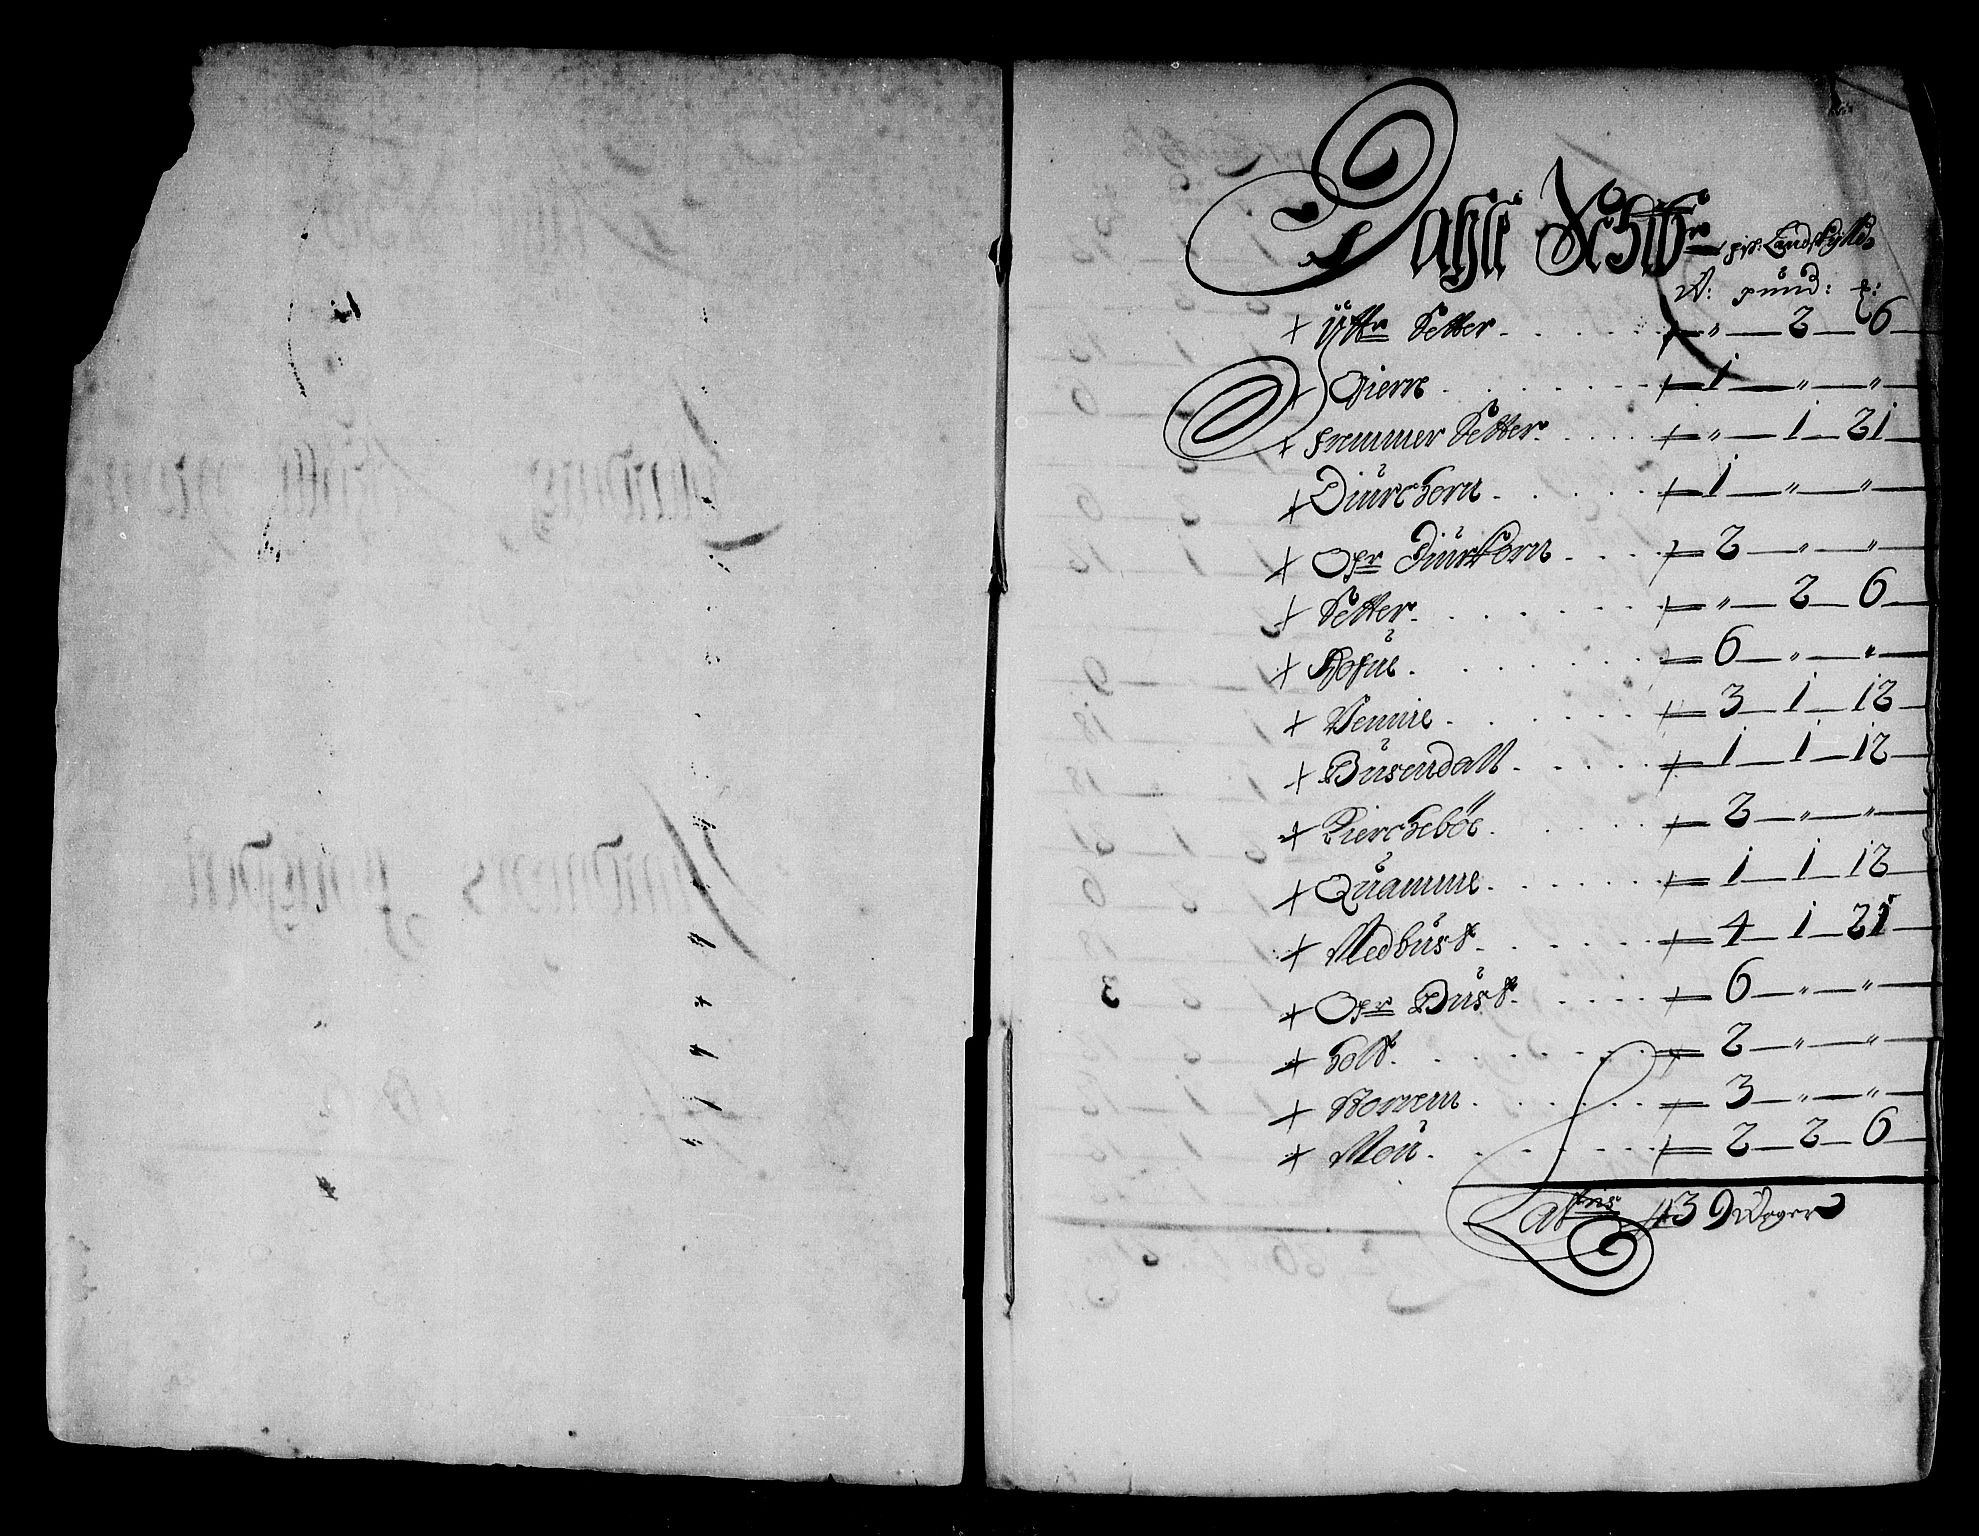 Dahle Schibr: frj: Landskylld
W: pund: ℔:
+ Ytter Setter . . . . " — 2 — 6
+ Gierre . . . . 1 — " — "
+ fremmer Setter . . . . " — 1 — 21
+ Diurchorn . . . . 1 — " — "
+ Ofr Diurkorn . . . . 2 — " — "
+ Setter . . . . " — 2 — 6
+ Hofue . . . . 6 — " — "
+ Vennie . . . . 3 — 1 — 12
+ Busendall . . . . 1 — 1 — 12
+ Kierchebøe . . . . 2 — " — "
+ Quamme . . . . 1 — 1 — 12
+ Nedbust . . . . 4 — 1 — 21
+ Ofr Bust . . . . 6 — " — "
+ holt . . . . 2 — " — "
+ Norrem . . . . 3 — " — "
+ Mou . . . . 2 — 2 — 6
Lateris 39 Woger